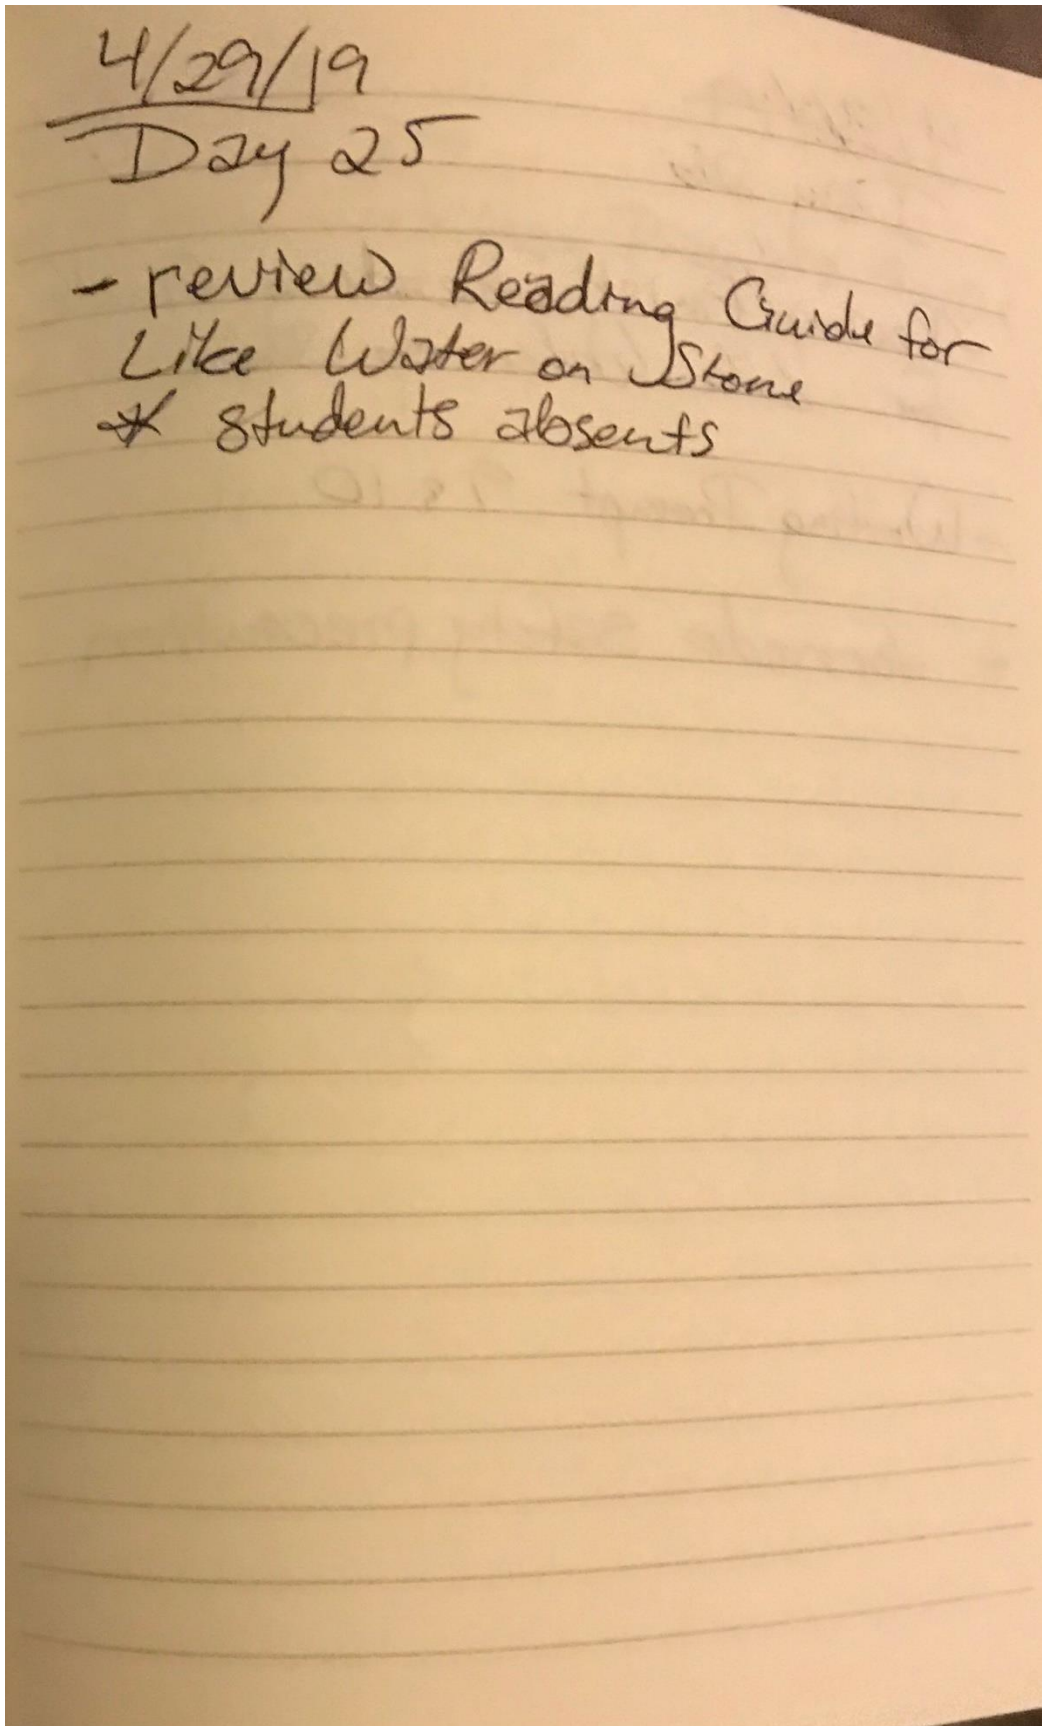 4/29/19
Day 25
- review Reading Guide for
Like Water on Stone
* students absents